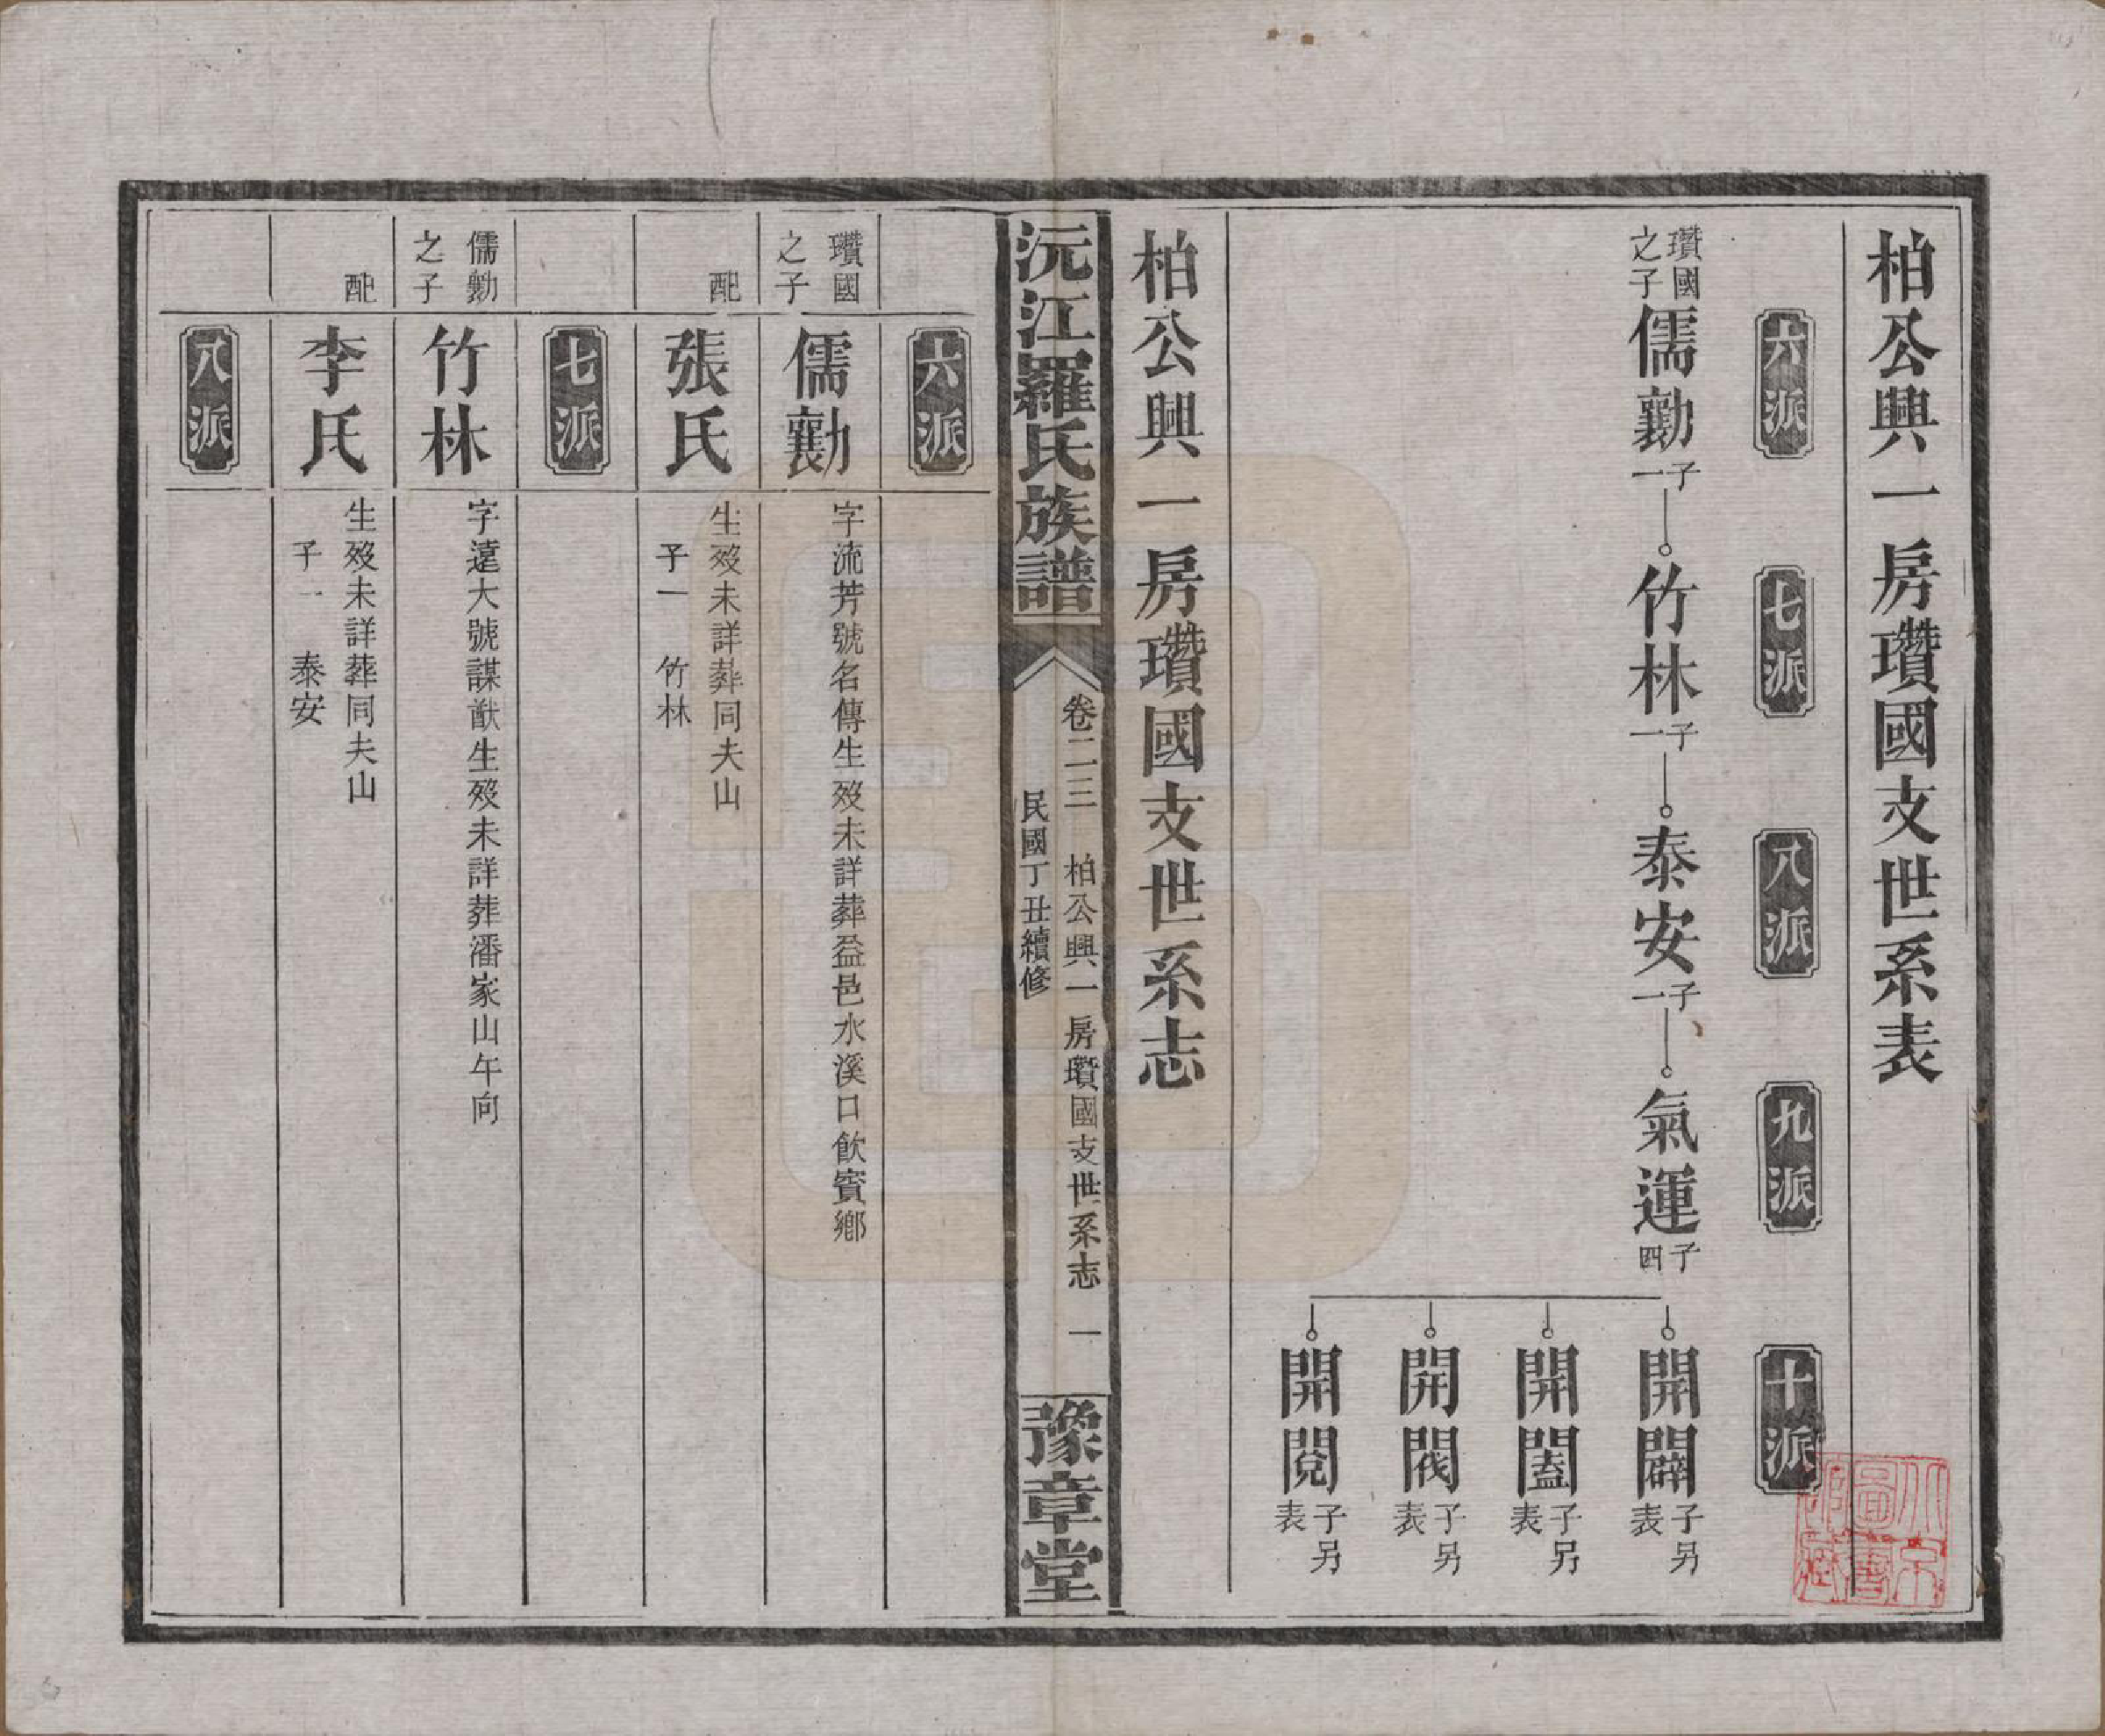 柏公興一房瓚國支世系表
六派
七派
八派
九派
十派
瓚國之子
儒勷
子一
竹林
子一
泰安
子一
氣運
子四
開闢
子另表
開闔
子另表
開閥
子另表
開閱
子另表
柏公興一房瓚國支世系志
沅江羅氏族譜
卷二三 柏公興一房瓚國支世系志 一
民國丁丑續修
豫章堂
六派
瓚國之子
儒勷
字流芳號名傳生歿未詳葬益邑水溪口飲賓鄉
配
張氏
生歿未詳葬同夫山
子一 竹林
七派
儒勷之子
竹林
字遠大號謀猷生歿未詳葬潘家山午向
配
李氏
生歿未詳葬同夫山
子一 泰安
八派
北京圖書館藏